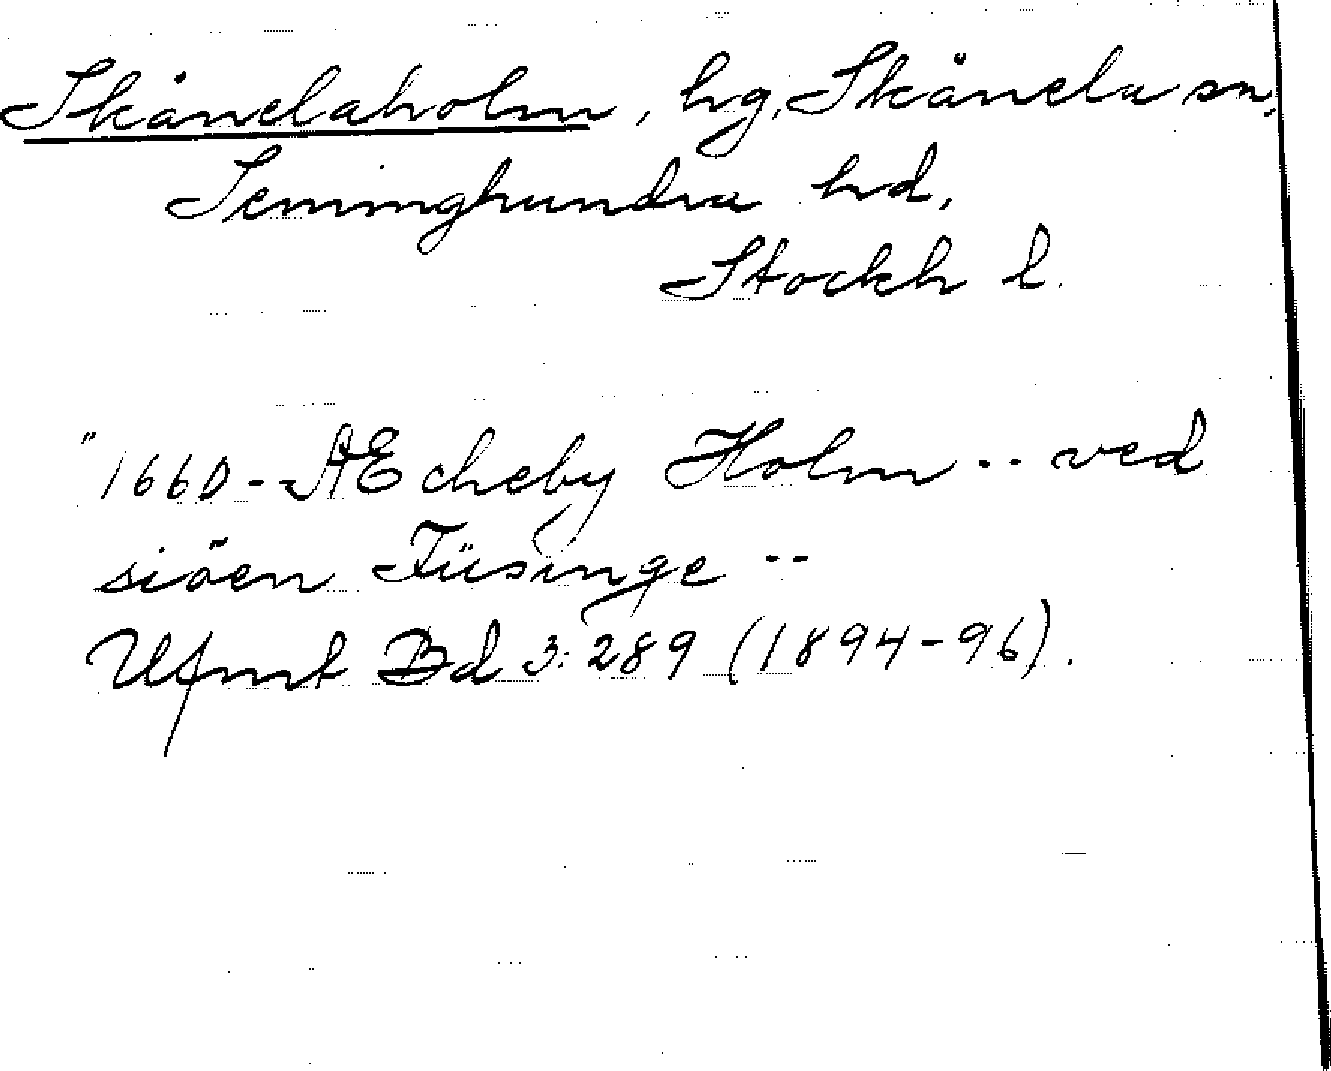 Skånelaholm, hg, Skånela sn,
Seminghundra hd,
Stockh l.
"1660 - ÆEcheby Holm -- ved
siöen Füsinge --
Ufmt Bd 3: 289 (1894-96).